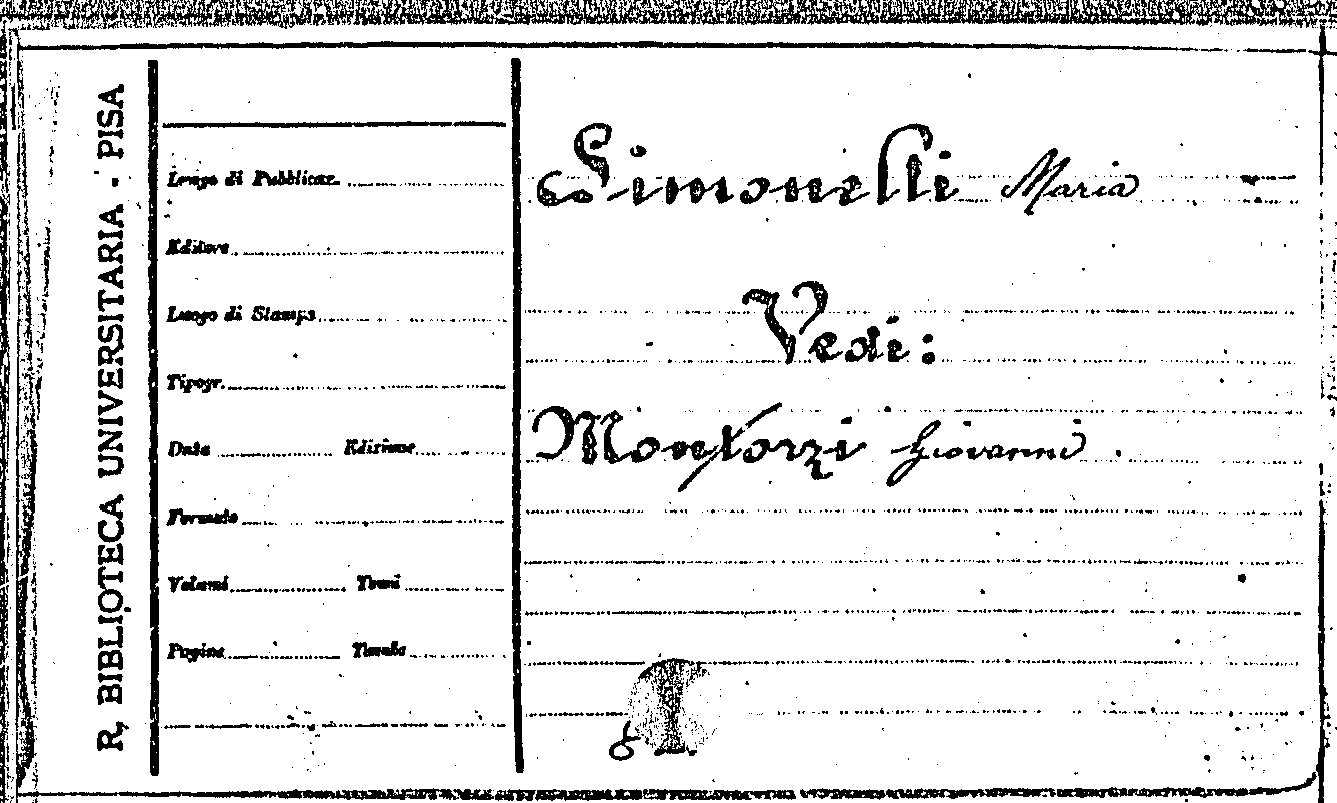 R, BIBLIOTECA UNIVERSITARIA - PISA
Luogo di Pubblicaz.
Editore
Luogo di Stampa
Tipogr.
Data Edizione
Formato
Volumi Tomi
Pagine Tavole
Simonelli Maria
Vedi:
Montorzi Giovanni.